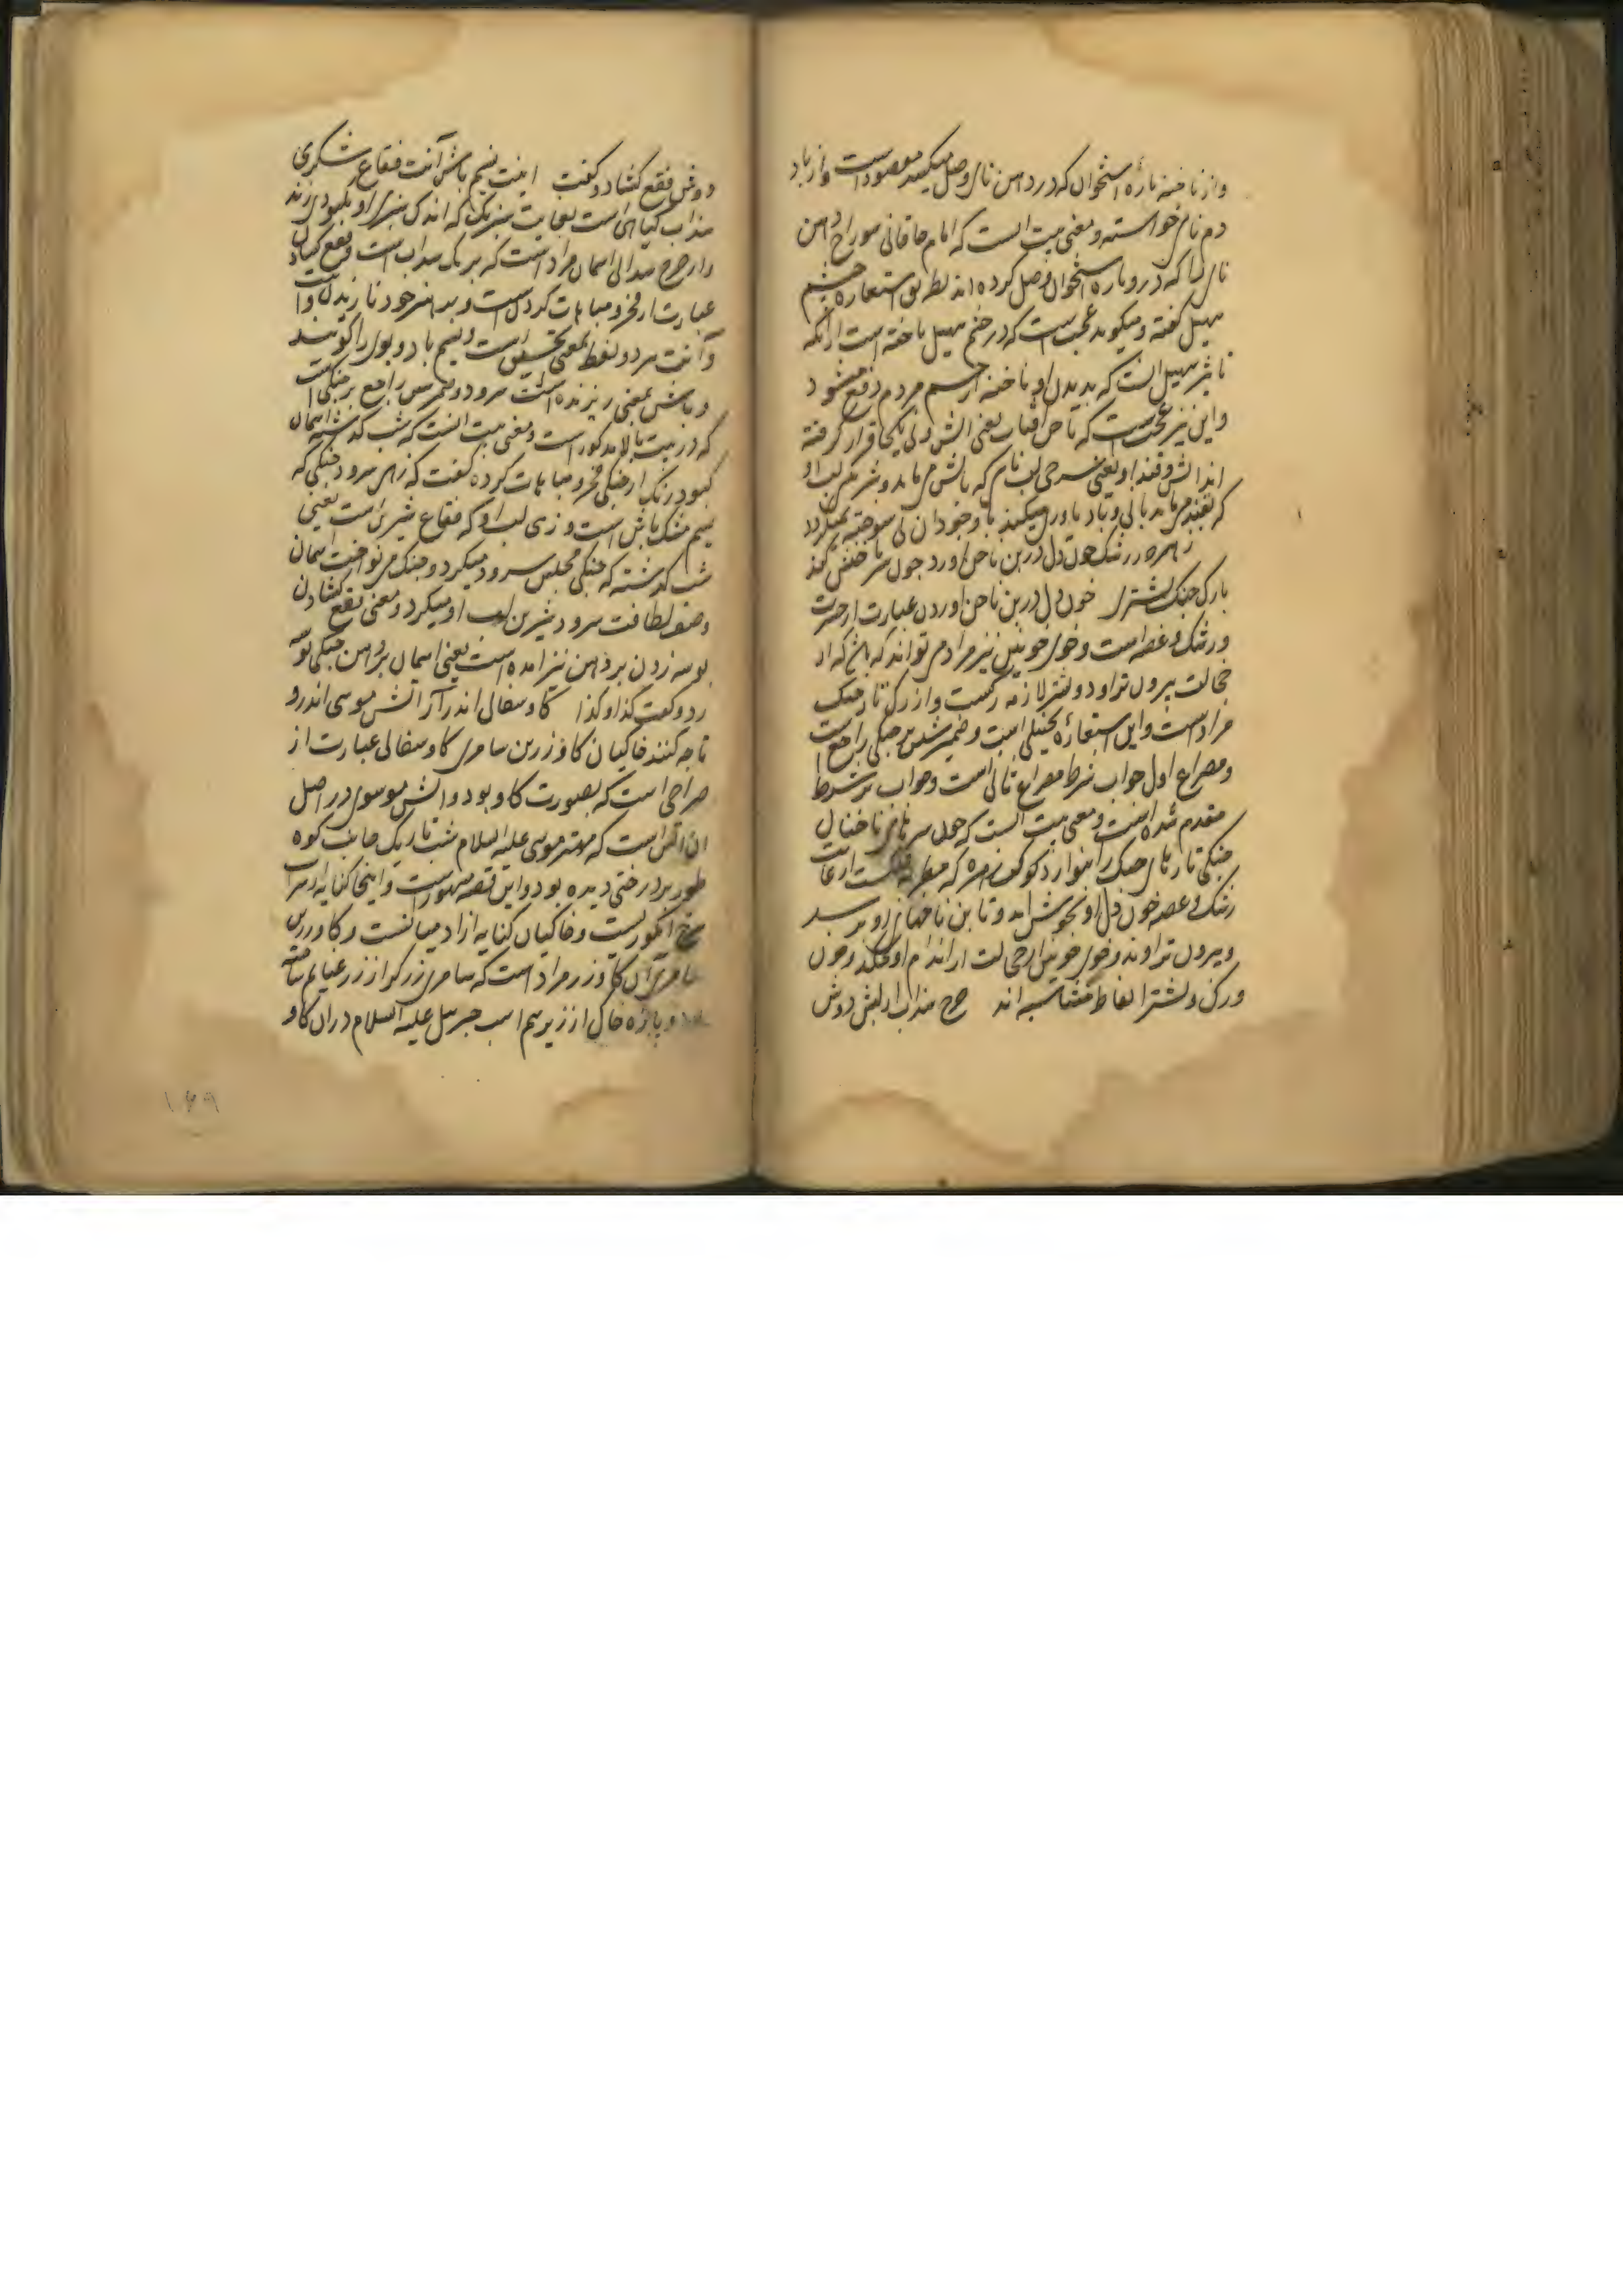 واز ناخنه پارهٔ استخوان که در دهن نای وصل میکنند مقصود است واز باد
دم نای خواسته و معنی بیت انست که امام خاقانی سوراخ دهن
نای را که درو پاره استخوان وصل کرده اند بطریق استعاره چشم
سهیل گفته و میکوید عجبست که در چشم سهیل ناخنه است از آنکه
تاثیر سهیل انست که بدیدن او ناخنه از چشم مردم دفع میشود
واین نیز عجبست که یعنی اتش ونی یکجا قرار گرفته
اند اتش وقند او یعنی سرخی لب نای که باتش می ماند وشیرینی لب او
که بقند می ماند بانی وباد یاوری میکنند با وجود آن نی سوخته نمیکردد
زهره ز رشک خون دل در بن ناخن اورد چون سر ناخنش کند
با رک چنک نشتری خون دل در بن ناخن اوردن عبارت از حسرت
ورشک و غصه است و خوی خونین نیز مراد می تواند که باشد که از
خجالت بیرون تراود ونشتر لازمه رکست واز رک تار چنک
مراد است واین استعارهٔ تخییلی است و ضمیر شین بر چنکی راجع است
ومصراع اول جواب شرط مصراع ثانی است وجواب بر شرط
مقدم شده است ومعنی بیت انست که چون سر ناخنان
چنکی تارهای چنک را بنوازد کوکب زهره که مطربه فلکست از غایت
رشک و غصه خون دل او بجوش اید وتا بن ناخنهای او برسد
وبیرون تراود وخوی خونین از خجالت از اندام او چکد وخون
ورک ونشتر الفاظ متناسبه اند چرخ سداب از لبش دوش
دوش فقع کشاد و گفت اینت نسیم باش آنت فقاع شکری
سداب کیاهی است بغایت سبزرنک که اندک سبزی او بکبودی زند
واز چرخ سدابی اسمان مراد است که برنک سداب است وفقع کشادن
عبارت از فخر ومباهات کردنست وبه هنر خود نازیدن واینت
وآنت هر دو لفظ بمعنی تحسین است ونسیم باد وبوی را کویند
وباش بمعنی ریزنده است سرود وضمیر ش راجع بر چنکی است
که در بیت بالا مذکور است ومعنی بیت انست که شب کذشته اسمان
کبود رنک از چنکی فخر ومباهات کرده کفت که زهی سرود چنکی که
نسیم مشک پاش است وزهی لب او که فقاع شیرین است یعنی
شب کذشته که چنکی مجلس سرود میکرد وچنک می نواخت اسمان
وصف لطافت سرود وشیرین لب او میکرد ومعنی فقع کشادن
بوسه زدن بر دهن نیز امده است یعنی اسمان بر دهن چنکی بوسه
زد و کفت کذا وکذا کاو سفالی اندر آر آتش موسی اندرو
تا چه کنند خاکیان کاو زرین سامری کاو سفالی عبارت از
صراحی است که بصورت کاو بود واتش موسوی در اصل
ان اتش است که مهتر موسی علیه السلام شب تاریک جانب کوه
طور بر درختی دیده بود واین قصه مشهور است واینجا کنایه از شراب
سرخ انکوریست وخاکیان کنایه از ادمیانست وکاو زرین
سامری آن کاو زر مراد است که سامری زرکر از زر غنایم ساخته
بود وپاره خاک از زیر سم اسب جبرییل علیه السلام دران کاو
۱۴۹